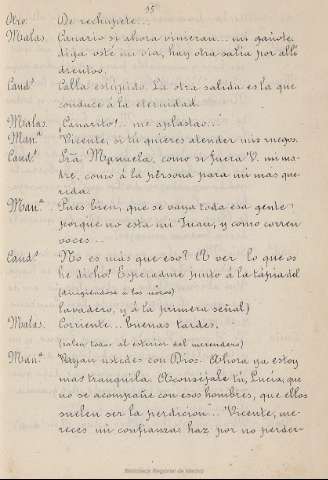 15
Otro. De rechupete...
Malas. Canario si ahora vinieran... mi gañote.
diga osté mi vía, hay otra salía por allí
drentos.
Cand.º Calla estúpido. La otra salida es la que
conduce á la eternidad.
Malas. ¡Canarito!.. me aplastao...
Man.ª Vicente, si tú quieres atender mis ruegos.
Cand.º Srā. Manuela, como si fuera V. mi ma-
dre, como á la persona para mí mas que-
rida.
Man.ª Pues bien, que se vaya toda esa gente
porque no está mi Juan, y como corren
voces...
Cand.º No es más que eso? A ver lo que os
he dicho! Esperadme junto á la tápia del
(dirigiéndose á los mozos)
lavadero, y á la primera señal)
Malas. Corriente... buenas tardes.
(salen todos al exterior del merendero)
Man.ª Vayan ustedes con Dios. Ahora ya estoy
mas tranquila. Aconséjale tú, Lucía, que
no se acompañe con esos hombres, que ellos
suelen ser la perdicion... Vicente, me-
reces mi confianza; haz por no perder-
Biblioteca Regional de Madrid